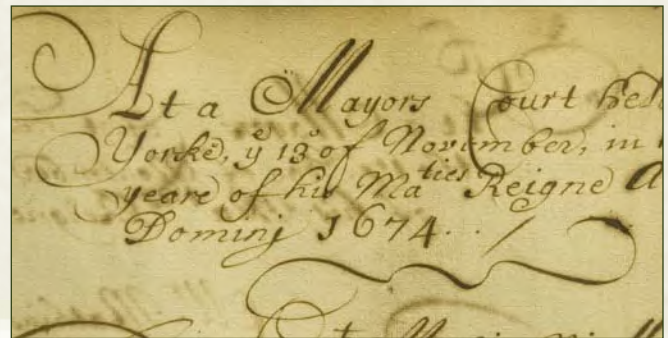 At a Mayors Court hel
Yorke, yᵉ 13º of November, in
yeare of his Maᵗⁱᵉˢ Reigne A
Dominj 1674..